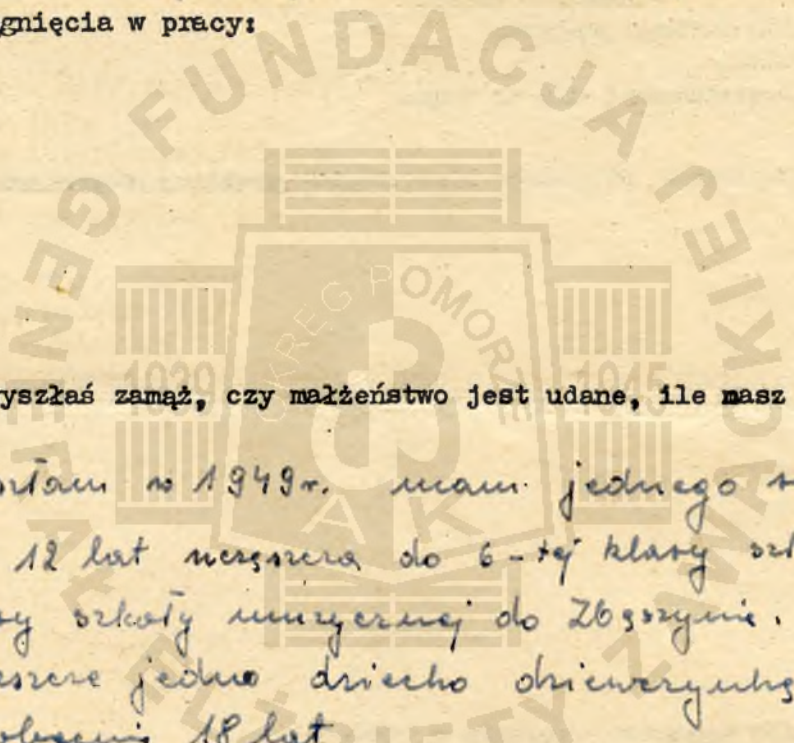 gnięcia w pracy:
FUNDACJA
GENERAŁ ELŻBIETY ZAWACKIEJ
OKRĘG POMORZE
1939 1945
AK
yszłaś zamąż, czy małżeństwo jest udane, ile masz
w 1949r. mam jednego
12 lat uczęszcza do 6-tej klasy
szkoły muzycznej do Zbąszynia.
jedno dziecko dziewczynkę
18 lat